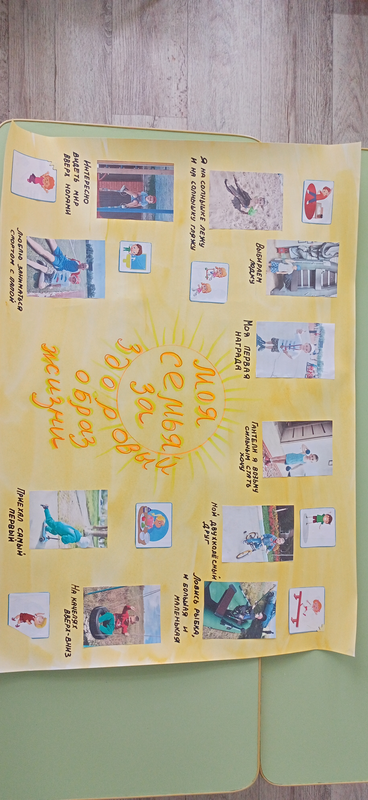 Выбираем
лодку
Гантели я возьму
сильным стать
хочу
Я на солнышке лежу
и на солнышко гляжу
Моя первая
награда
Мой двухколёсный
друг
Ловись рыбка,
и большая и
маленькая
Моя
семья
за
здоровый
образ
жизни
Интересно
видеть мир
вверх ногами
Люблю заниматься
спортом с папой
Приехал самый
первый
На качелях
вверх-вниз